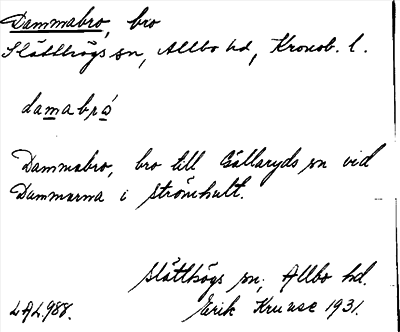 Dammabro, bro
Slätthögs sn, Allbo hd, Kronob. l.
damabró
Dammabro, bro till Gällaryds sn vid
Dammarna i Strömhult.
Slätthögs sn, Allbo hd.
LAL 988. Erik Kruuse 1931.